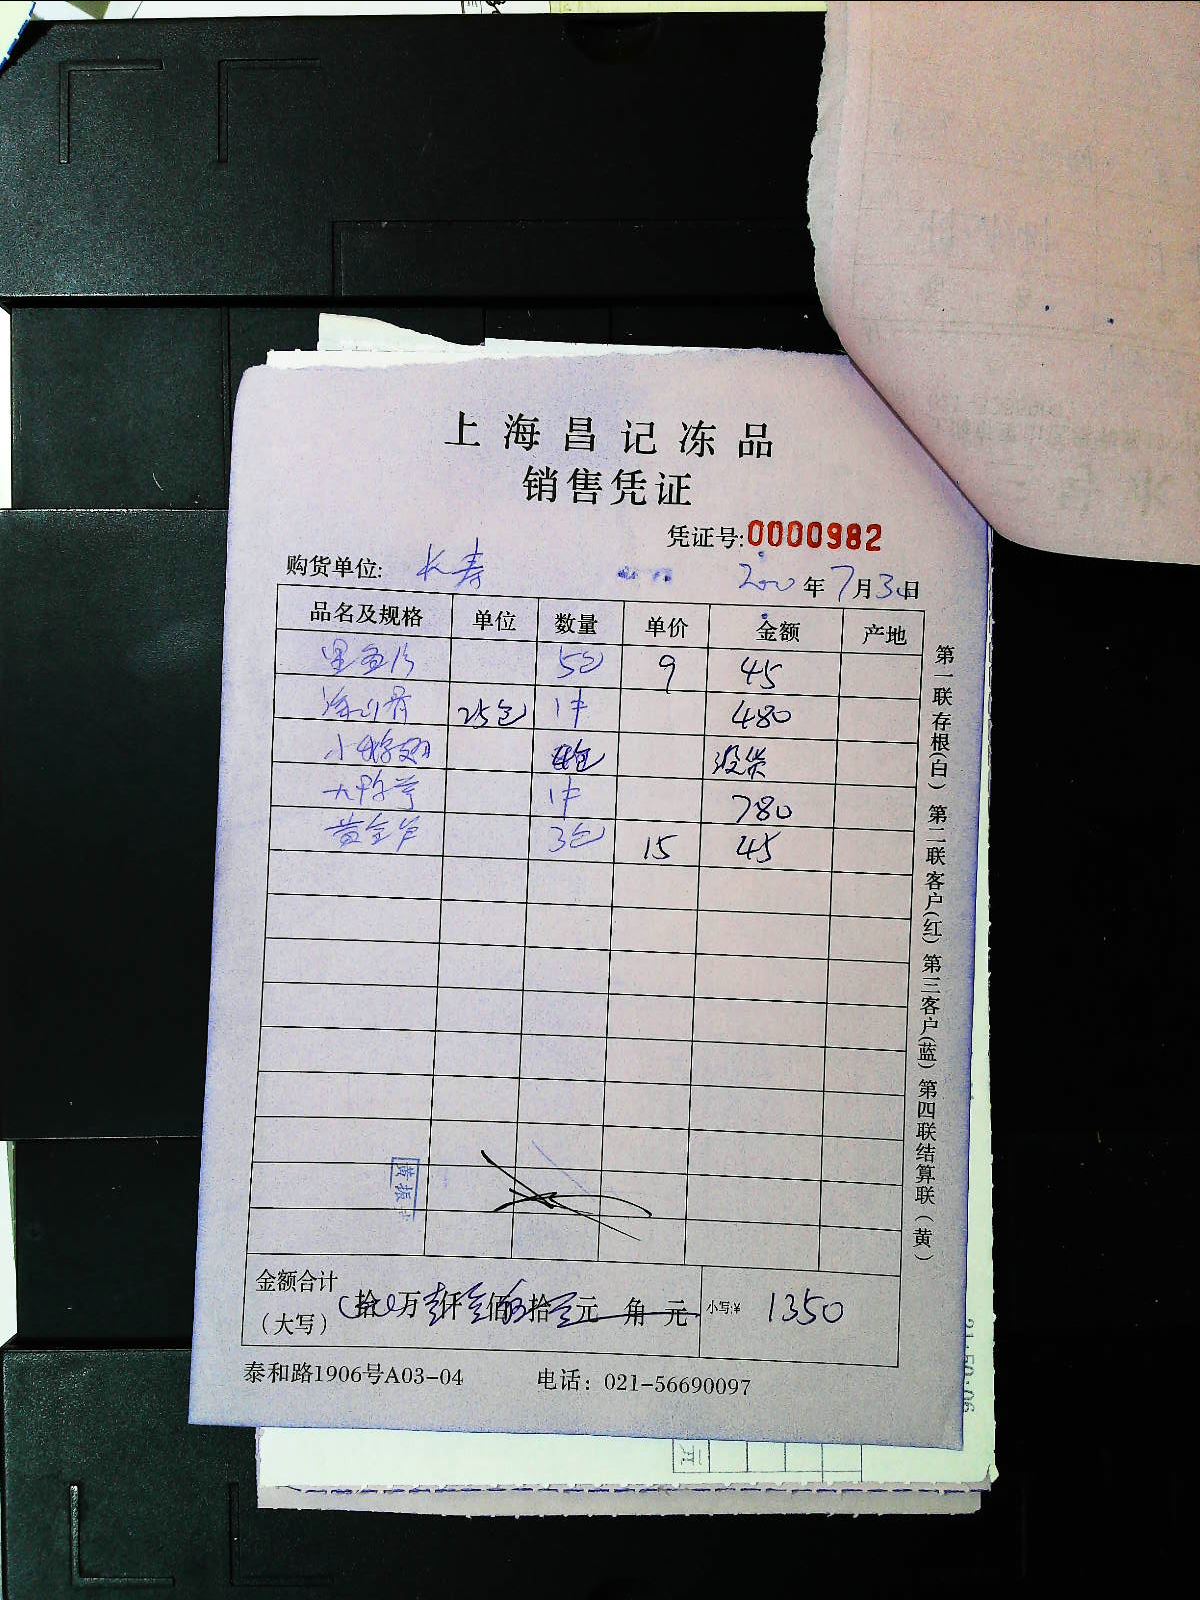 上海昌记冻品
销售凭证
凭证号:0000982
购货单位: 长寿 年7月30日
品名及规格 单位 数量 单价 金额 产地
5包 9 45
25包 1件 480
小 翅 没货
1件 780
黄金 3包 15 45
金额合计
(大写) 拾 万 仟 佰 拾 元 角 元 小写:¥ 1350
泰和路1906号A03-04 电话: 021-56690097
第一联存根(白) 第二联客户(红) 第三客户(蓝) 第四联结算联(黄)